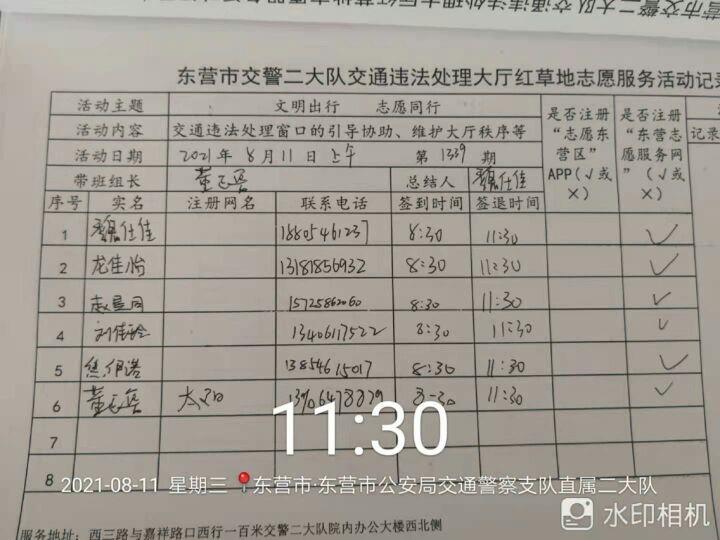 东营市交警二大队交通违法处理大厅红草地志愿服务活动记录
活动主题 文明出行 志愿同行
活动内容 交通违法处理窗口的引导协助、维护大厅秩序等
活动日期 2021年8月11日上午 第1339期
是否注册“志愿东营区”APP(√或×)
是否注册“东营志愿服务网”(√或×)
记录
带班组长 总结人
序号 实名 注册网名 联系电话 签到时间 签退时间
1 18805461237 8:30 11:30 ✓
2 龙佳怡 13181856932 8:30 11:30 ✓
3 15725862060 8:30 11:30 ✓
4 刘佳玲 13406117522 8:30 11:30 ✓
5 焦伊诺 13854615017 8:30 11:30 ✓
6 太阳 8-30 11:30 ✓
7
8
11:30
2021-08-11 星期三 东营市·东营市公安局交通警察支队直属二大队
水印相机
服务地址：西三路与嘉祥路口西行一百米交警二大队院内办公大楼西北侧